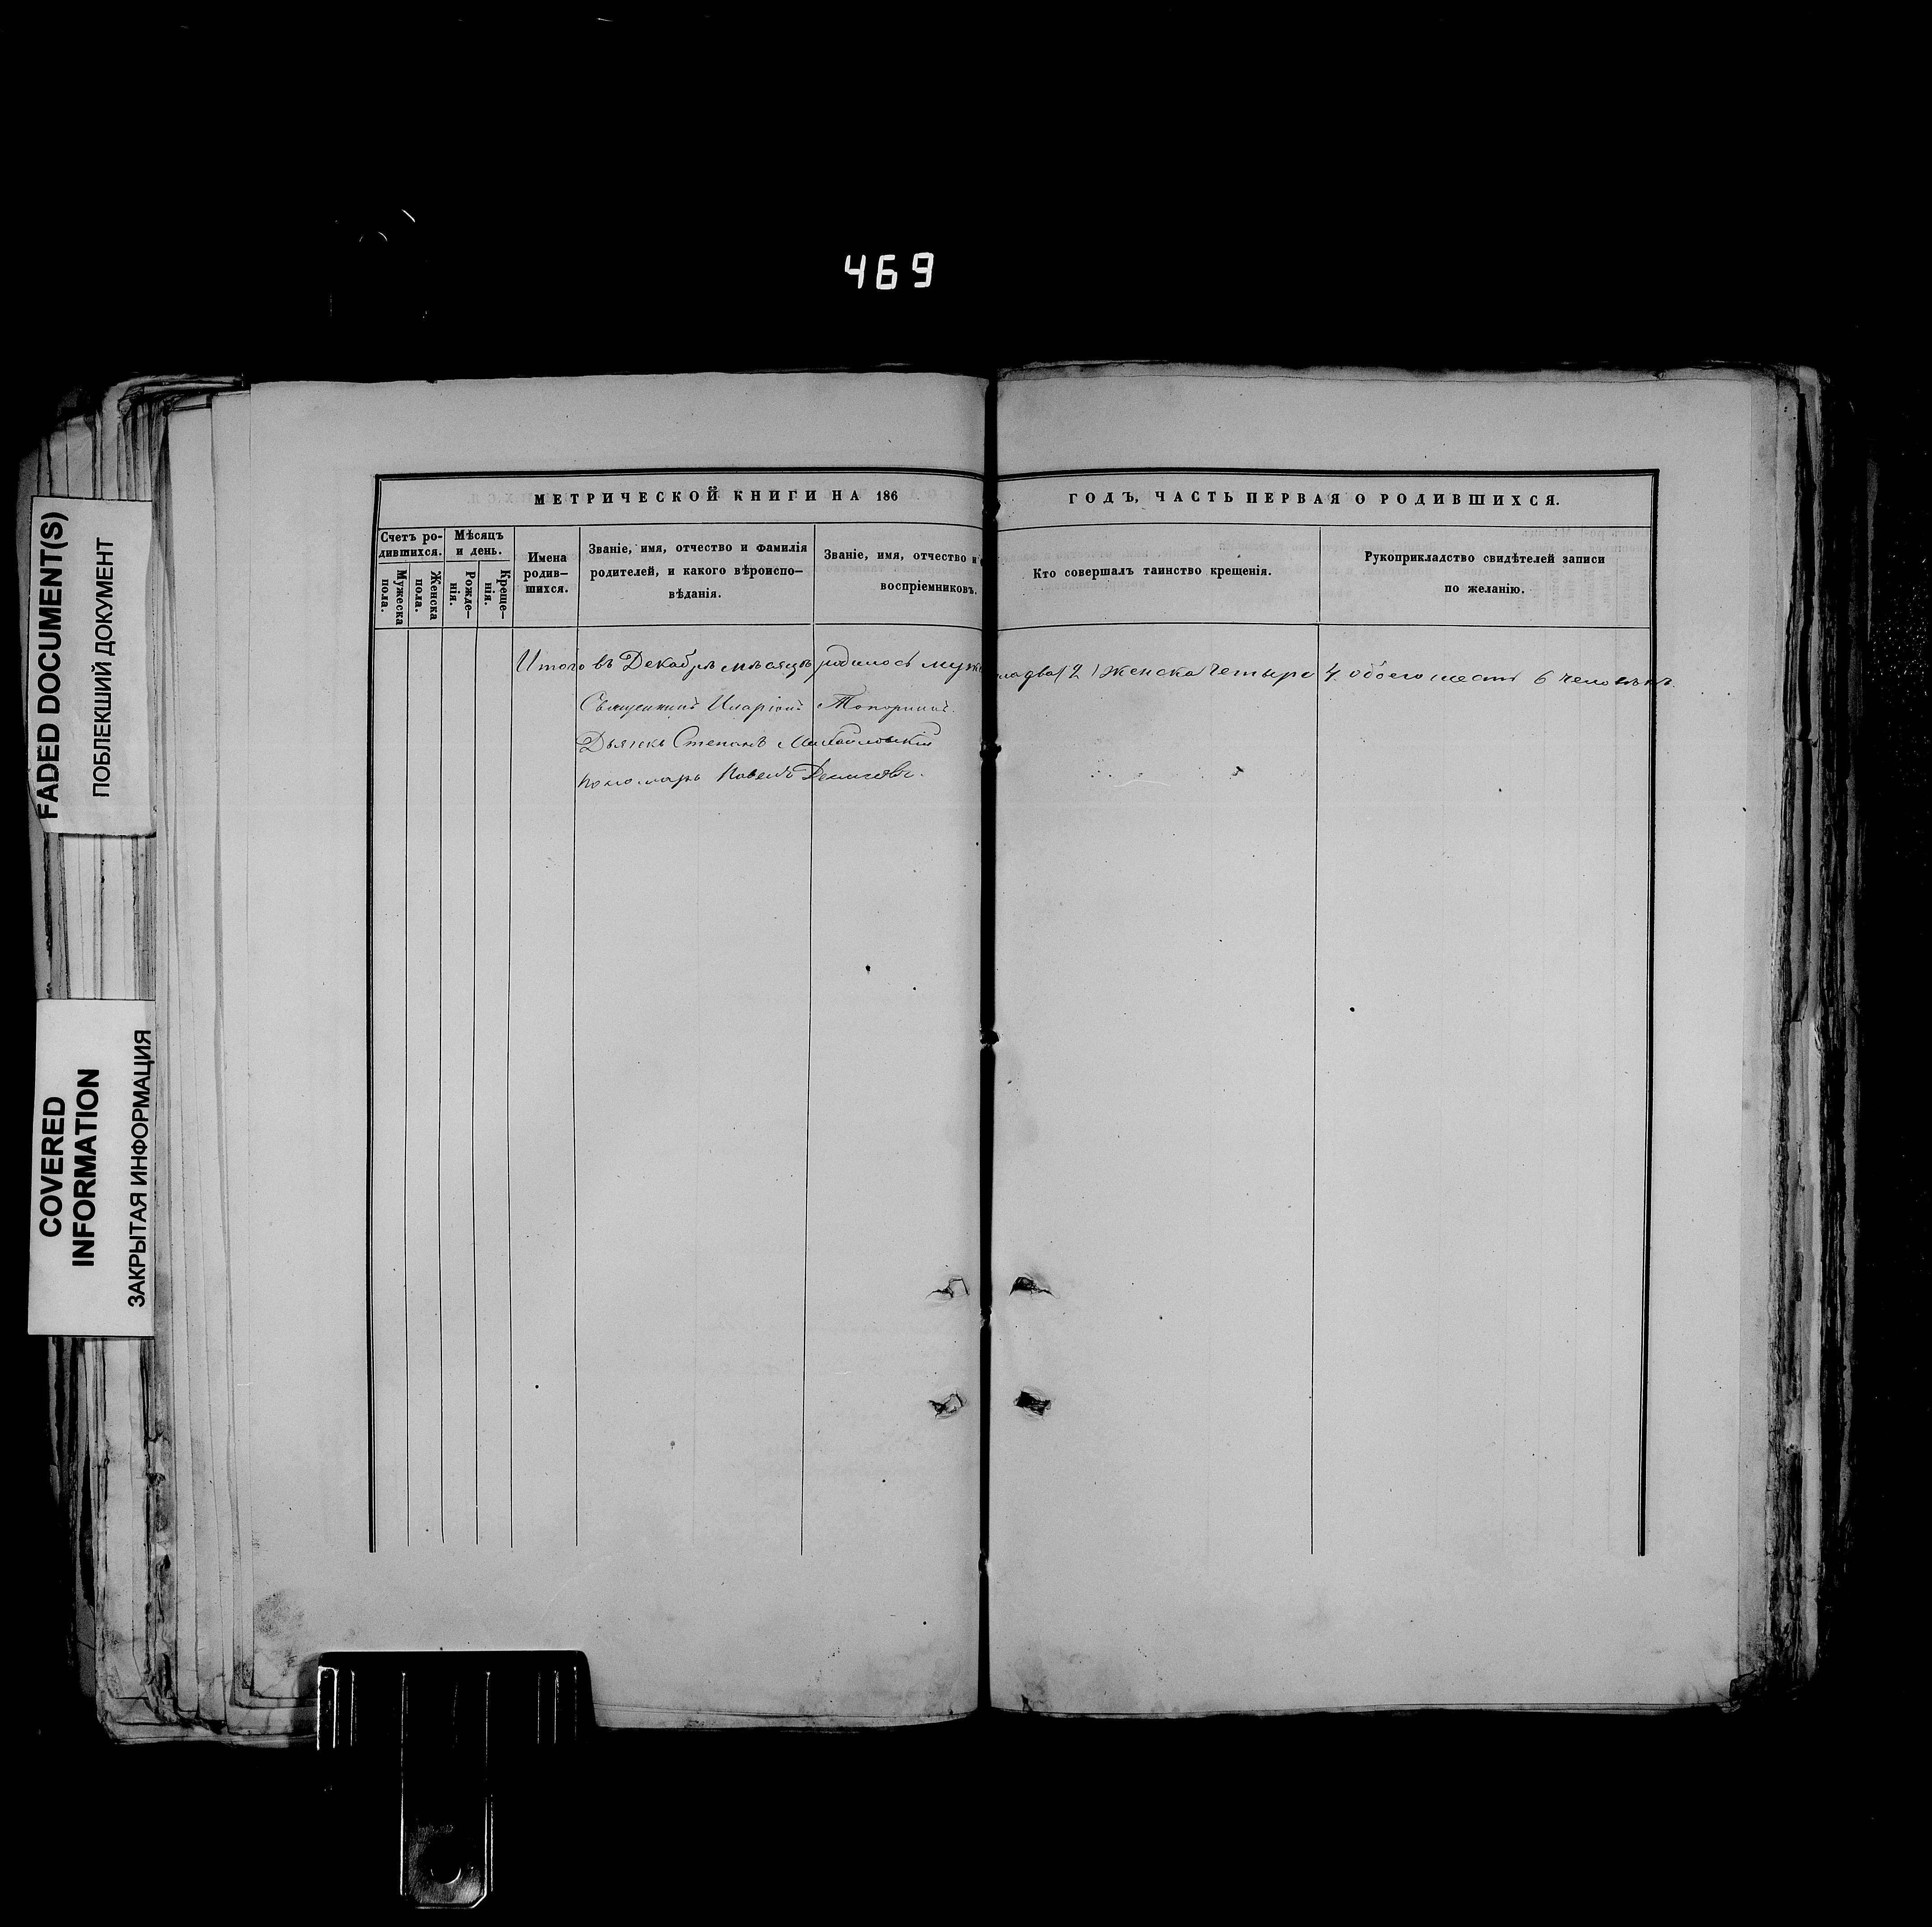 469
FADED DOCUMENT(S)
ПОБЛЕКШИЙ ДОКУМЕНТ
COVERED
INFORMATION
ЗАКРЫТАЯ ИНФОРМАЦИЯ
МЕТРИЧЕСКОЙ КНИГИ НА 186
ГОДЪ, ЧАСТЬ ПЕРВАЯ О РОДИВШИХСЯ.
Счетъ ро-
дившихся.
Мужеска
пола.
Женска
пола.
Мѣсяцъ
и день.
Рожде-
нія.
Креще-
нія.
Имена
родив-
шихся.
Званіе, имя, отчество и фамилія
родителей, и какого вѣроиспо-
вѣданія.
Званіе, имя, отчество и
воспріемниковъ.
Кто совершалъ таинство крещенія.
Рукоприкладство свидѣтелей записи
по желанію.
Итого въ Декабрѣ мѣсяцѣ родилось муже ка два (2) женска четыре 4 обоего шесть 6 человѣкъ.
Священникъ Иларіонъ Топорнинъ.
Дьячекъ Степанъ
Пономарь Павелъ Денисовъ.